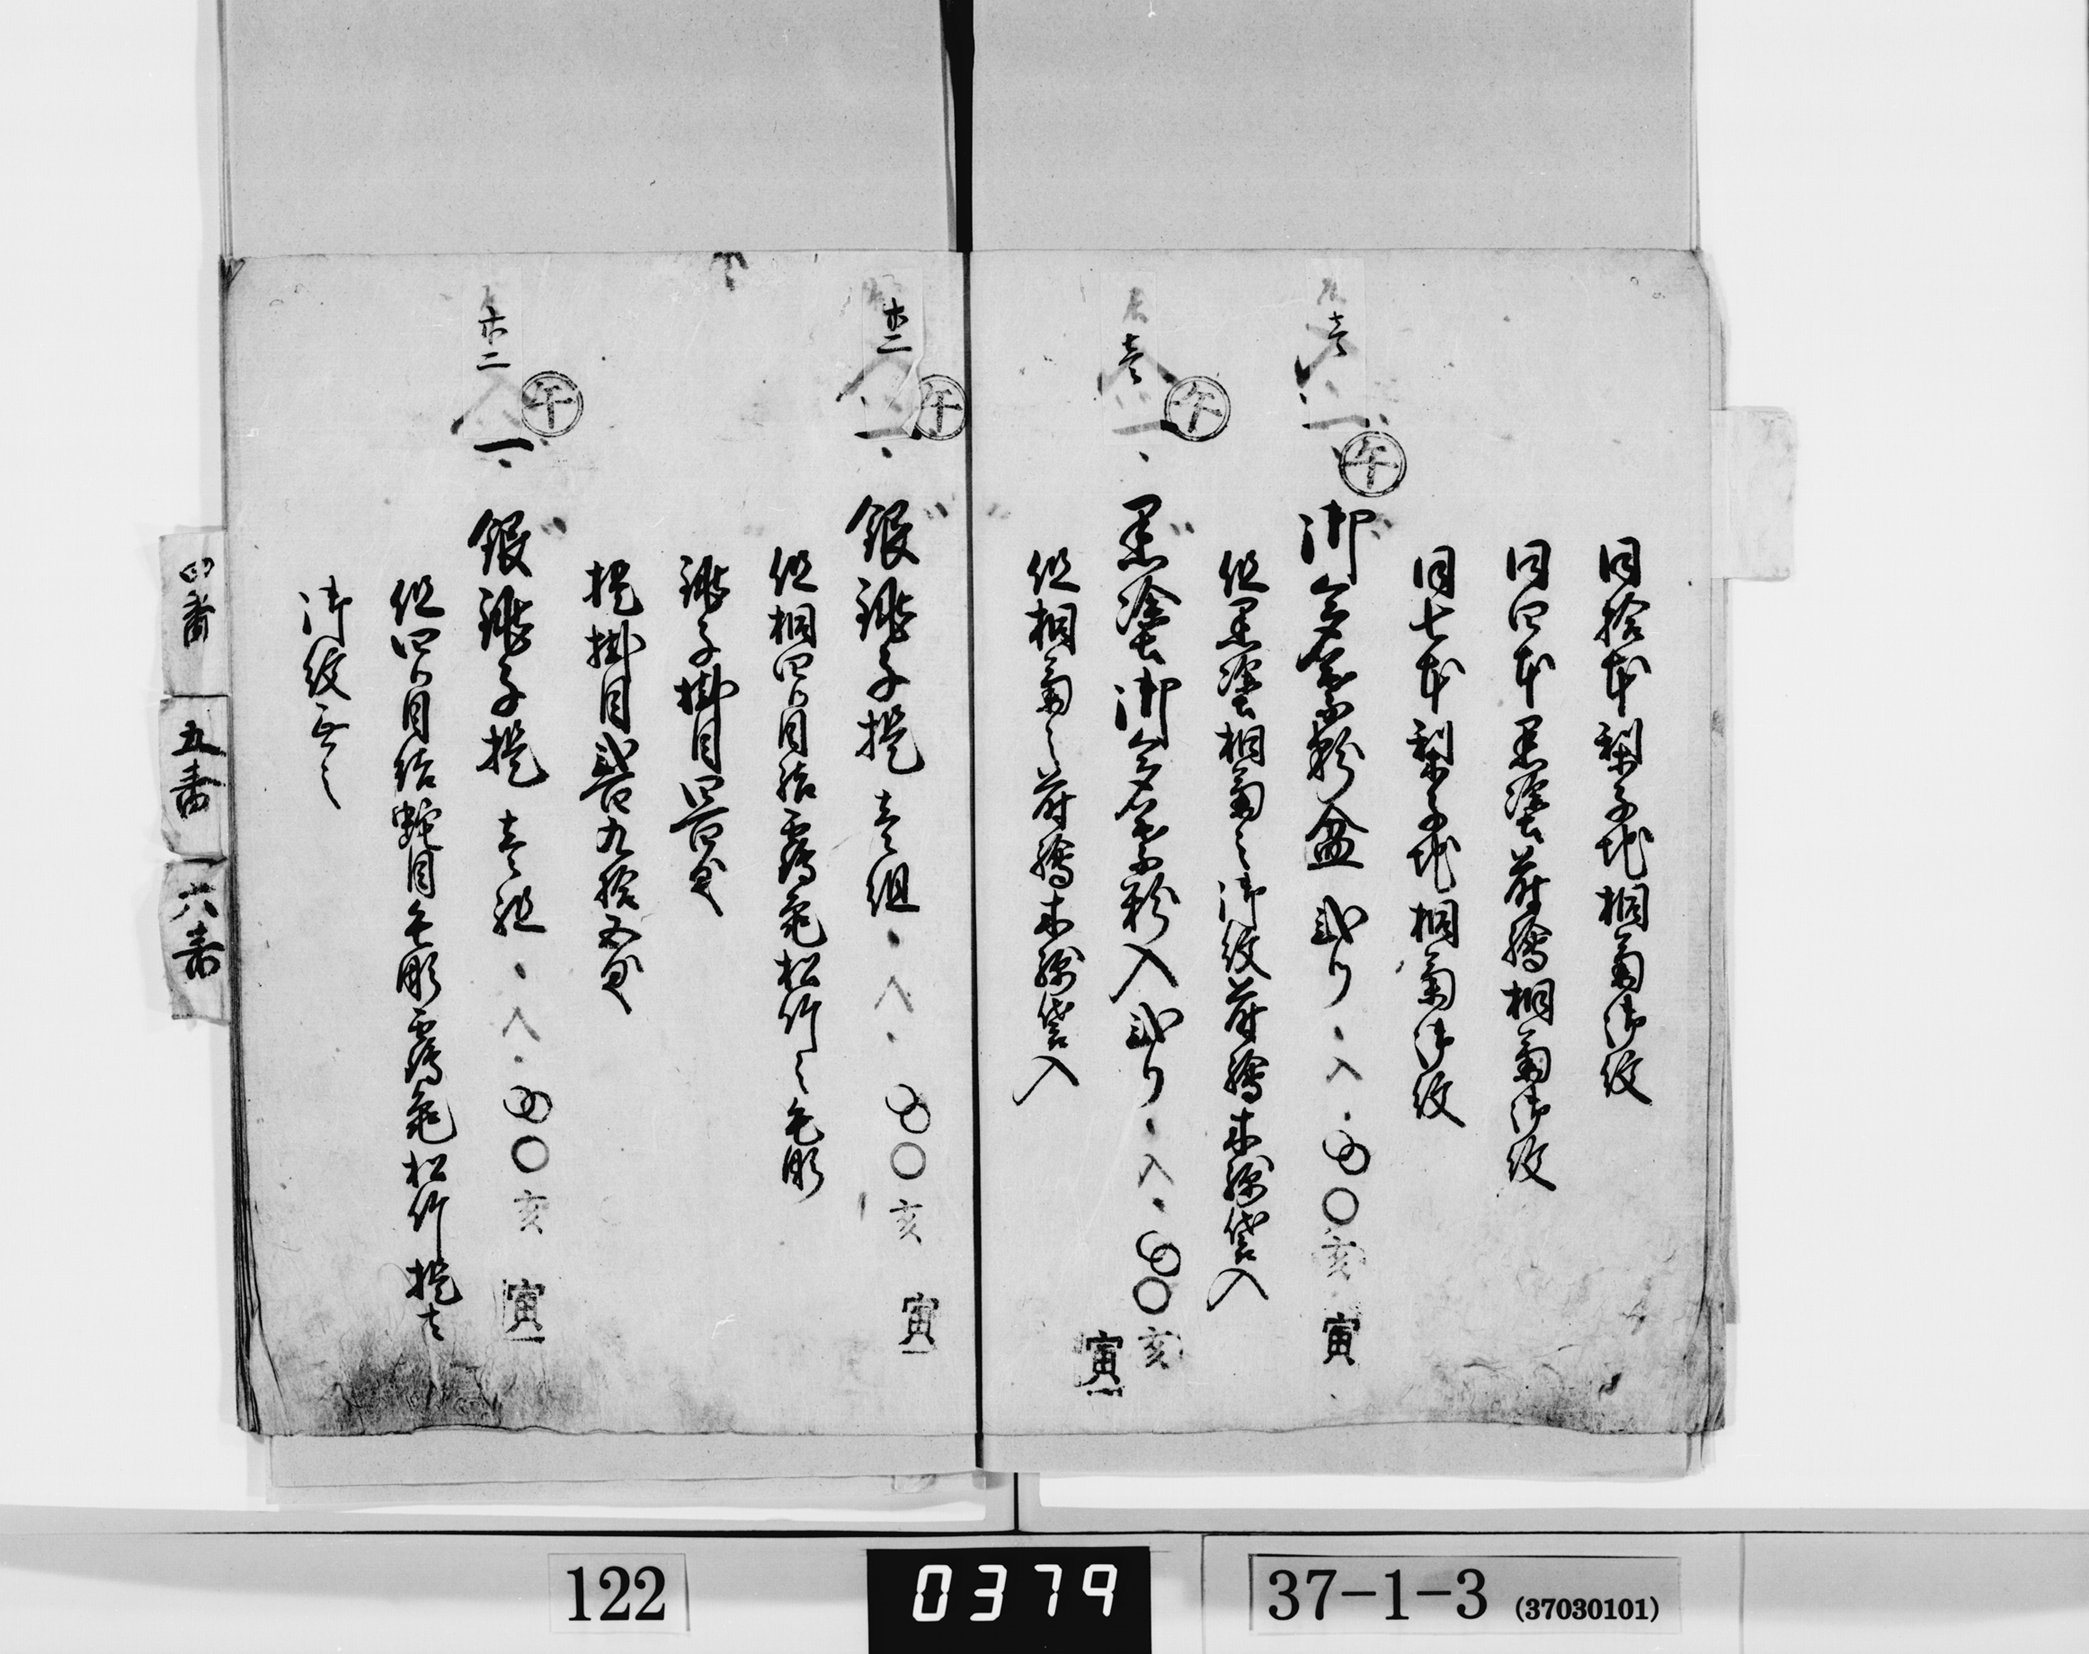 同拾本梨子地桐菊御紋
同四本黒塗蒔繪桐菊御紋
同七本梨子地桐菊御紋
壱
午
一、御多葉粉盆 弐ツ ・入・ 〇 亥 寅
但黒塗桐菊之御紋蒔繪木綿袋入
壱
午
一、黒塗御多葉粉入 弐ツ ・入・ 〇 亥 寅
但桐菊之蒔繪木綿袋入
午
一、銀銚子提 壱組 ・入・ 〇 亥 寅
但桐四ツ目結霍亀松竹之毛彫
銚子掛目四百匁
提掛目弐百九拾五匁
午
一、銀銚子提 壱組 ・入・ 〇 亥 寅
但四ツ目結蛇目毛彫霍亀松竹提ニ
御紋無之
四番
五番
六番
122
0379
37-1-3 (37030101)